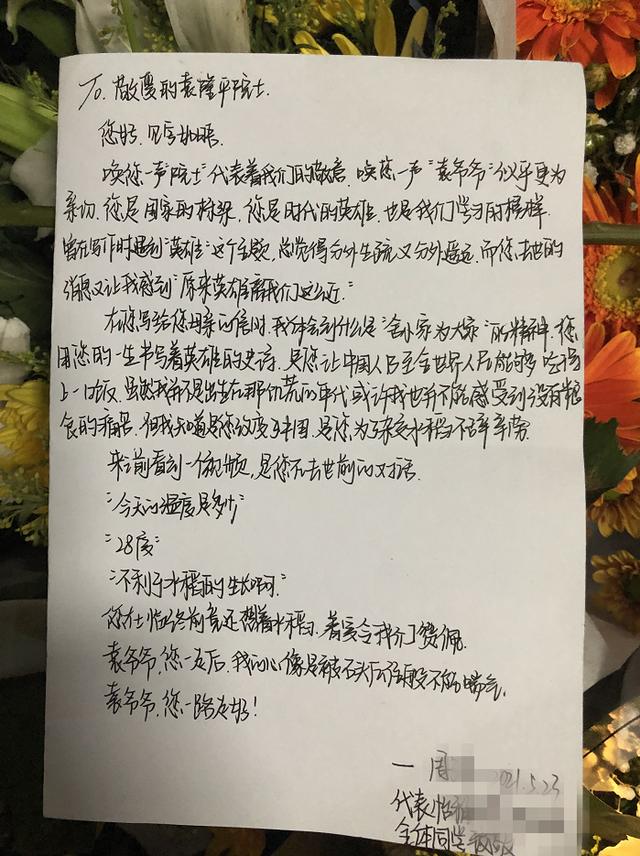 To. 敬爱的袁隆平院士.
您好,见字如晤.
唤您一声"院士"代表着我们的敬意,唤您一声"袁爷爷"似乎更为
亲切.您是国家的栋梁,您是时代的英雄,也是我们学习的榜样.
曾在写作时遇到"英雄"这个主题,总觉得分外生疏又分外遥远,而您去世的
消息又让我感到"原来英雄离我们这么近."
在您写给您母亲的信时,我体会到什么是"舍小家为大家"的精神.您
用您的一生书写着英雄的史诗.是您让中国人民至全世界人民能够吃得
上一口饭.虽然我并不是出生在那饥荒的年代或许我也并不能感受到没有粮
食的痛苦.但我知道是您改变了中国,是您为了杂交水稻不辞辛劳.
来之前看到一个视频,是您在去世前的对话.
"今天的温度是多少"
"28度"
"不利于水稻的生长啊."
您在临终前竟还想着水稻,着实令我们赞佩.
袁爷爷,您一走后,我的心像是被石头压住般不能喘气.
袁爷爷,您一路走好!
一 周 2021.5.23
代表
全体同学